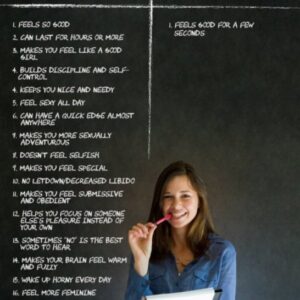 1. FEELS SO GOOD
2. CAN LAST FOR HOURS OR MORE
3. MAKES YOU FEEL LIKE A GOOD
GIRL
4. BUILDS DISCIPLINE AND SELF-
CONTROL
4. KEEPS YOU NICE AND NEEDY
5. FEEL SEXY ALL DAY
6. CAN HAVE A QUICK EDGE ALMOST
ANYWHERE
9. MAKES YOU MORE SEXUALLY
ADVENTUROUS
8. DOESN'T FEEL SELFISH
9. MAKES YOU FEEL SPECIAL
10. NO LETDOWN/DECREASED LIBIDO
11. MAKES YOU FEEL SUBMISSIVE
AND OBEDIENT
12. HELPS YOU FOCUS ON SOMEONE
ELSE'S PLEASURE INSTEAD OF
YOUR OWN
13. SOMETIMES "NO" IS THE BEST
WORD TO HEAR
14. MAKES YOUR BRAIN FEEL WARM
AND FULLY
15. WAKE UP HORNY EVERY DAY
16. FEEL MORE FEMININE
1. FEELS GOOD FOR A FEW
SECONDS